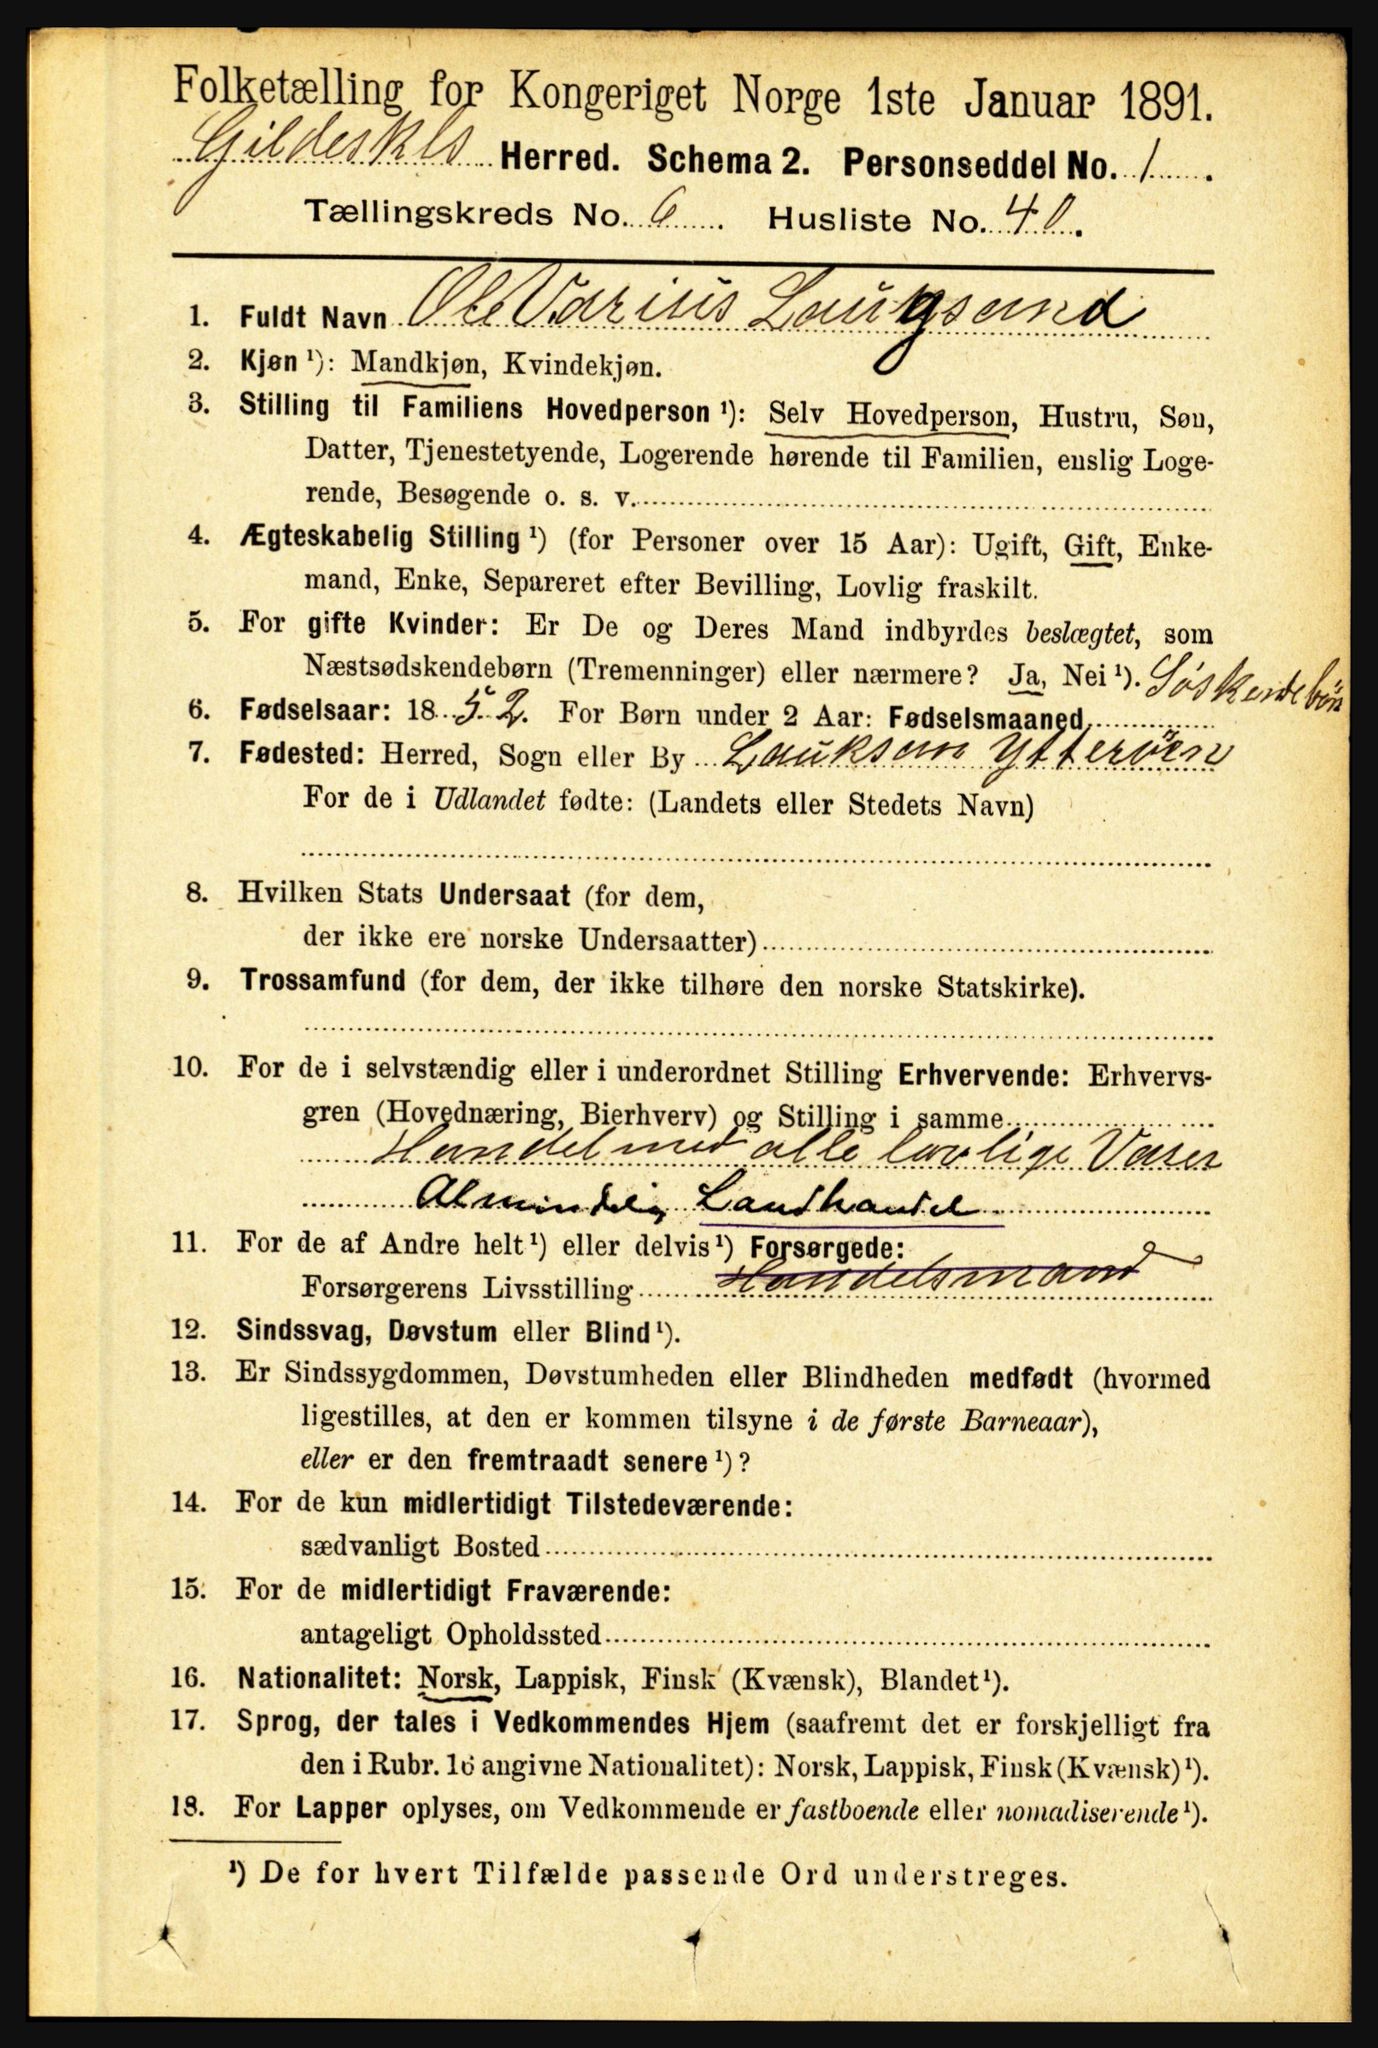 Folketælling for Kongeriget Norge 1ste Januar 1891.
Gildeskls Herred. Schema 2. Personseddel No. 1.
Tællingskreds No. 6. Husliste No. 40.
1. Fuldt Navn Ole Varius Laugsand
2. Kjøn ¹): Mandkjøn, Kvindekjøn.
3. Stilling til Familiens Hovedperson ¹): Selv Hovedperson, Hustru, Søn,
Datter, Tjenestetyende, Logerende hørende til Familien, enslig Loge-
rende, Besøgende o. s. v.
4. Ægteskabelig Stilling ¹) (for Personer over 15 Aar): Ugift, Gift, Enke-
mand, Enke, Separeret efter Bevilling, Lovlig fraskilt.
5. For gifte Kvinder: Er De og Deres Mand indbyrdes beslægtet, som
Næstsødskendebørn (Tremenninger) eller nærmere? Ja, Nei ¹). Søskendebørn
6. Fødselsaar: 1852. For Børn under 2 Aar: Fødselsmaaned
7. Fødested: Herred, Sogn eller By Lauksan Ytterøen
For de i Udlandet fødte: (Landets eller Stedets Navn)
8. Hvilken Stats Undersaat (for dem,
der ikke ere norske Undersaatter)
9. Trossamfund (for dem, der ikke tilhøre den norske Statskirke).
10. For de i selvstændig eller i underordnet Stilling Erhvervende: Erhvervs-
gren (Hovednæring, Bierhverv) og Stilling i samme
Handel med alle lovlige Varer
Almindelig Landhandel
11. For de af Andre helt ¹) eller delvis ¹) Forsørgede:
Forsørgerens Livsstilling Handelsmand
12. Sindssvag, Døvstum eller Blind ¹).
13. Er Sindssygdommen, Døvstumheden eller Blindheden medfødt (hvormed
ligestilles, at den er kommen tilsyne i de første Barneaar),
eller er den fremtraadt senere ¹)?
14. For de kun midlertidigt Tilstedeværende:
sædvanligt Bosted
15. For de midlertidigt Fraværende:
antageligt Opholdssted
16. Nationalitet: Norsk, Lappisk, Finsk (Kvænsk), Blandet ¹).
17. Sprog, der tales i Vedkommendes Hjem (saafremt det er forskjelligt fra
den i Rubr. 16 angivne Nationalitet): Norsk, Lappisk, Finsk (Kvænsk) ¹).
18. For Lapper oplyses, om Vedkommende er fastboende eller nomadiserende ¹).
¹) De for hvert Tilfælde passende Ord understreges.